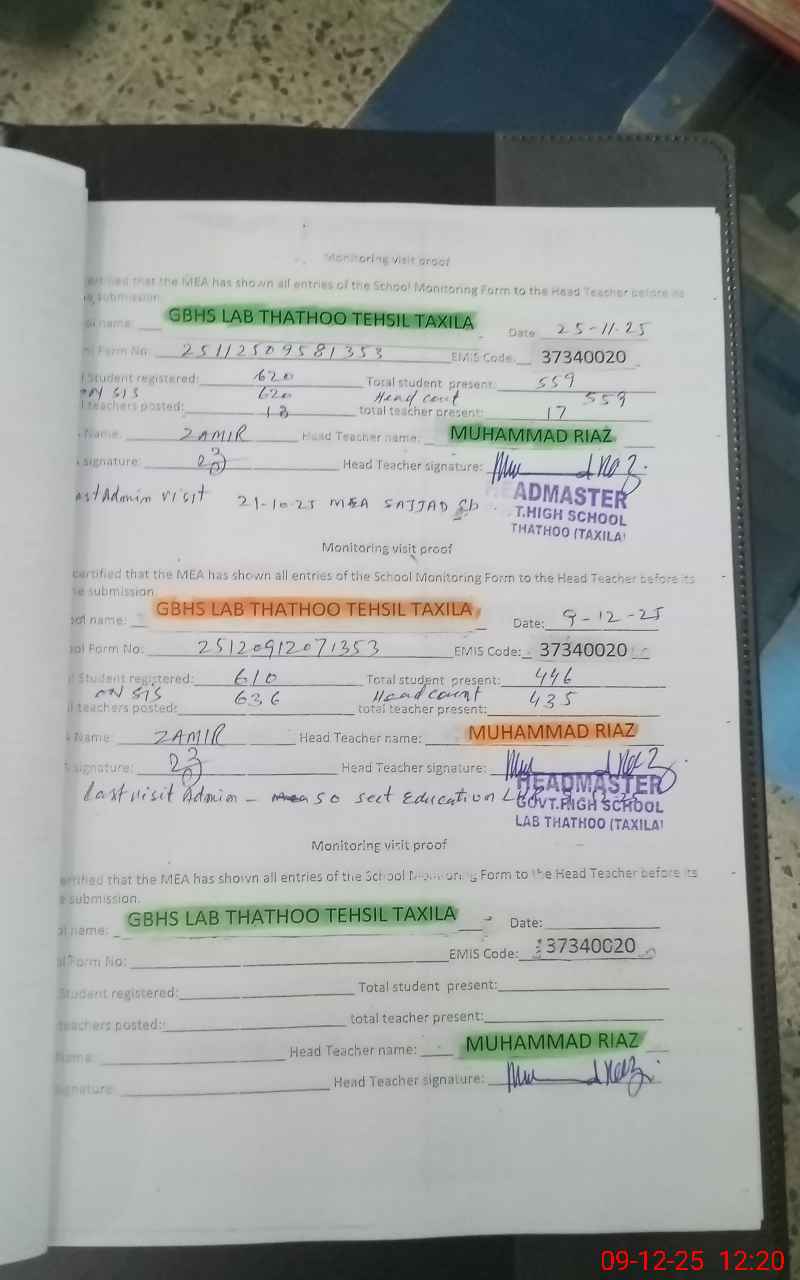 Monitoring visit proof
ertified that the MEA has shown all entries of the School Monitoring Form to the Head Teacher before its
submission.
ol name: GBHS LAB THATHOO TEHSIL TAXILA Date: 25-11-25
Form No: 25112509581353 EMIS Code: 37340020
Student registered: 620 Total student present: 559
ON SIS 620 Head cout 559
teachers posted: 18 total teacher present: 17
Name: ZAMIR Head Teacher name: MUHAMMAD RIAZ
signature: Head Teacher signature:
ast Admin visit 21-10-25 MEA SAJJAD Sb
HEADMASTER
T.HIGH SCHOOL
THATHOO (TAXILA)
Monitoring visit proof
certified that the MEA has shown all entries of the School Monitoring Form to the Head Teacher before its
e submission.
ool name: GBHS LAB THATHOO TEHSIL TAXILA Date: 9-12-25
ol Form No: 25120912071353 EMIS Code: 37340020
Student registered: 610 Total student present: 446
ON SIS 636 Head count 435
l teachers posted: total teacher present:
Name: ZAMIR Head Teacher name: MUHAMMAD RIAZ
signature: Head Teacher signature:
Last visit Admin - SO sect Education
HEADMASTER
GOVT.HIGH SCHOOL
LAB THATHOO (TAXILA)
Monitoring visit proof
ertified that the MEA has shown all entries of the School Monitoring Form to the Head Teacher before its
e submission.
ol name: GBHS LAB THATHOO TEHSIL TAXILA Date:
ol Form No: EMIS Code: 37340020
Student registered: Total student present:
teachers posted: total teacher present:
Name: Head Teacher name: MUHAMMAD RIAZ
signature: Head Teacher signature:
09-12-25 12:20